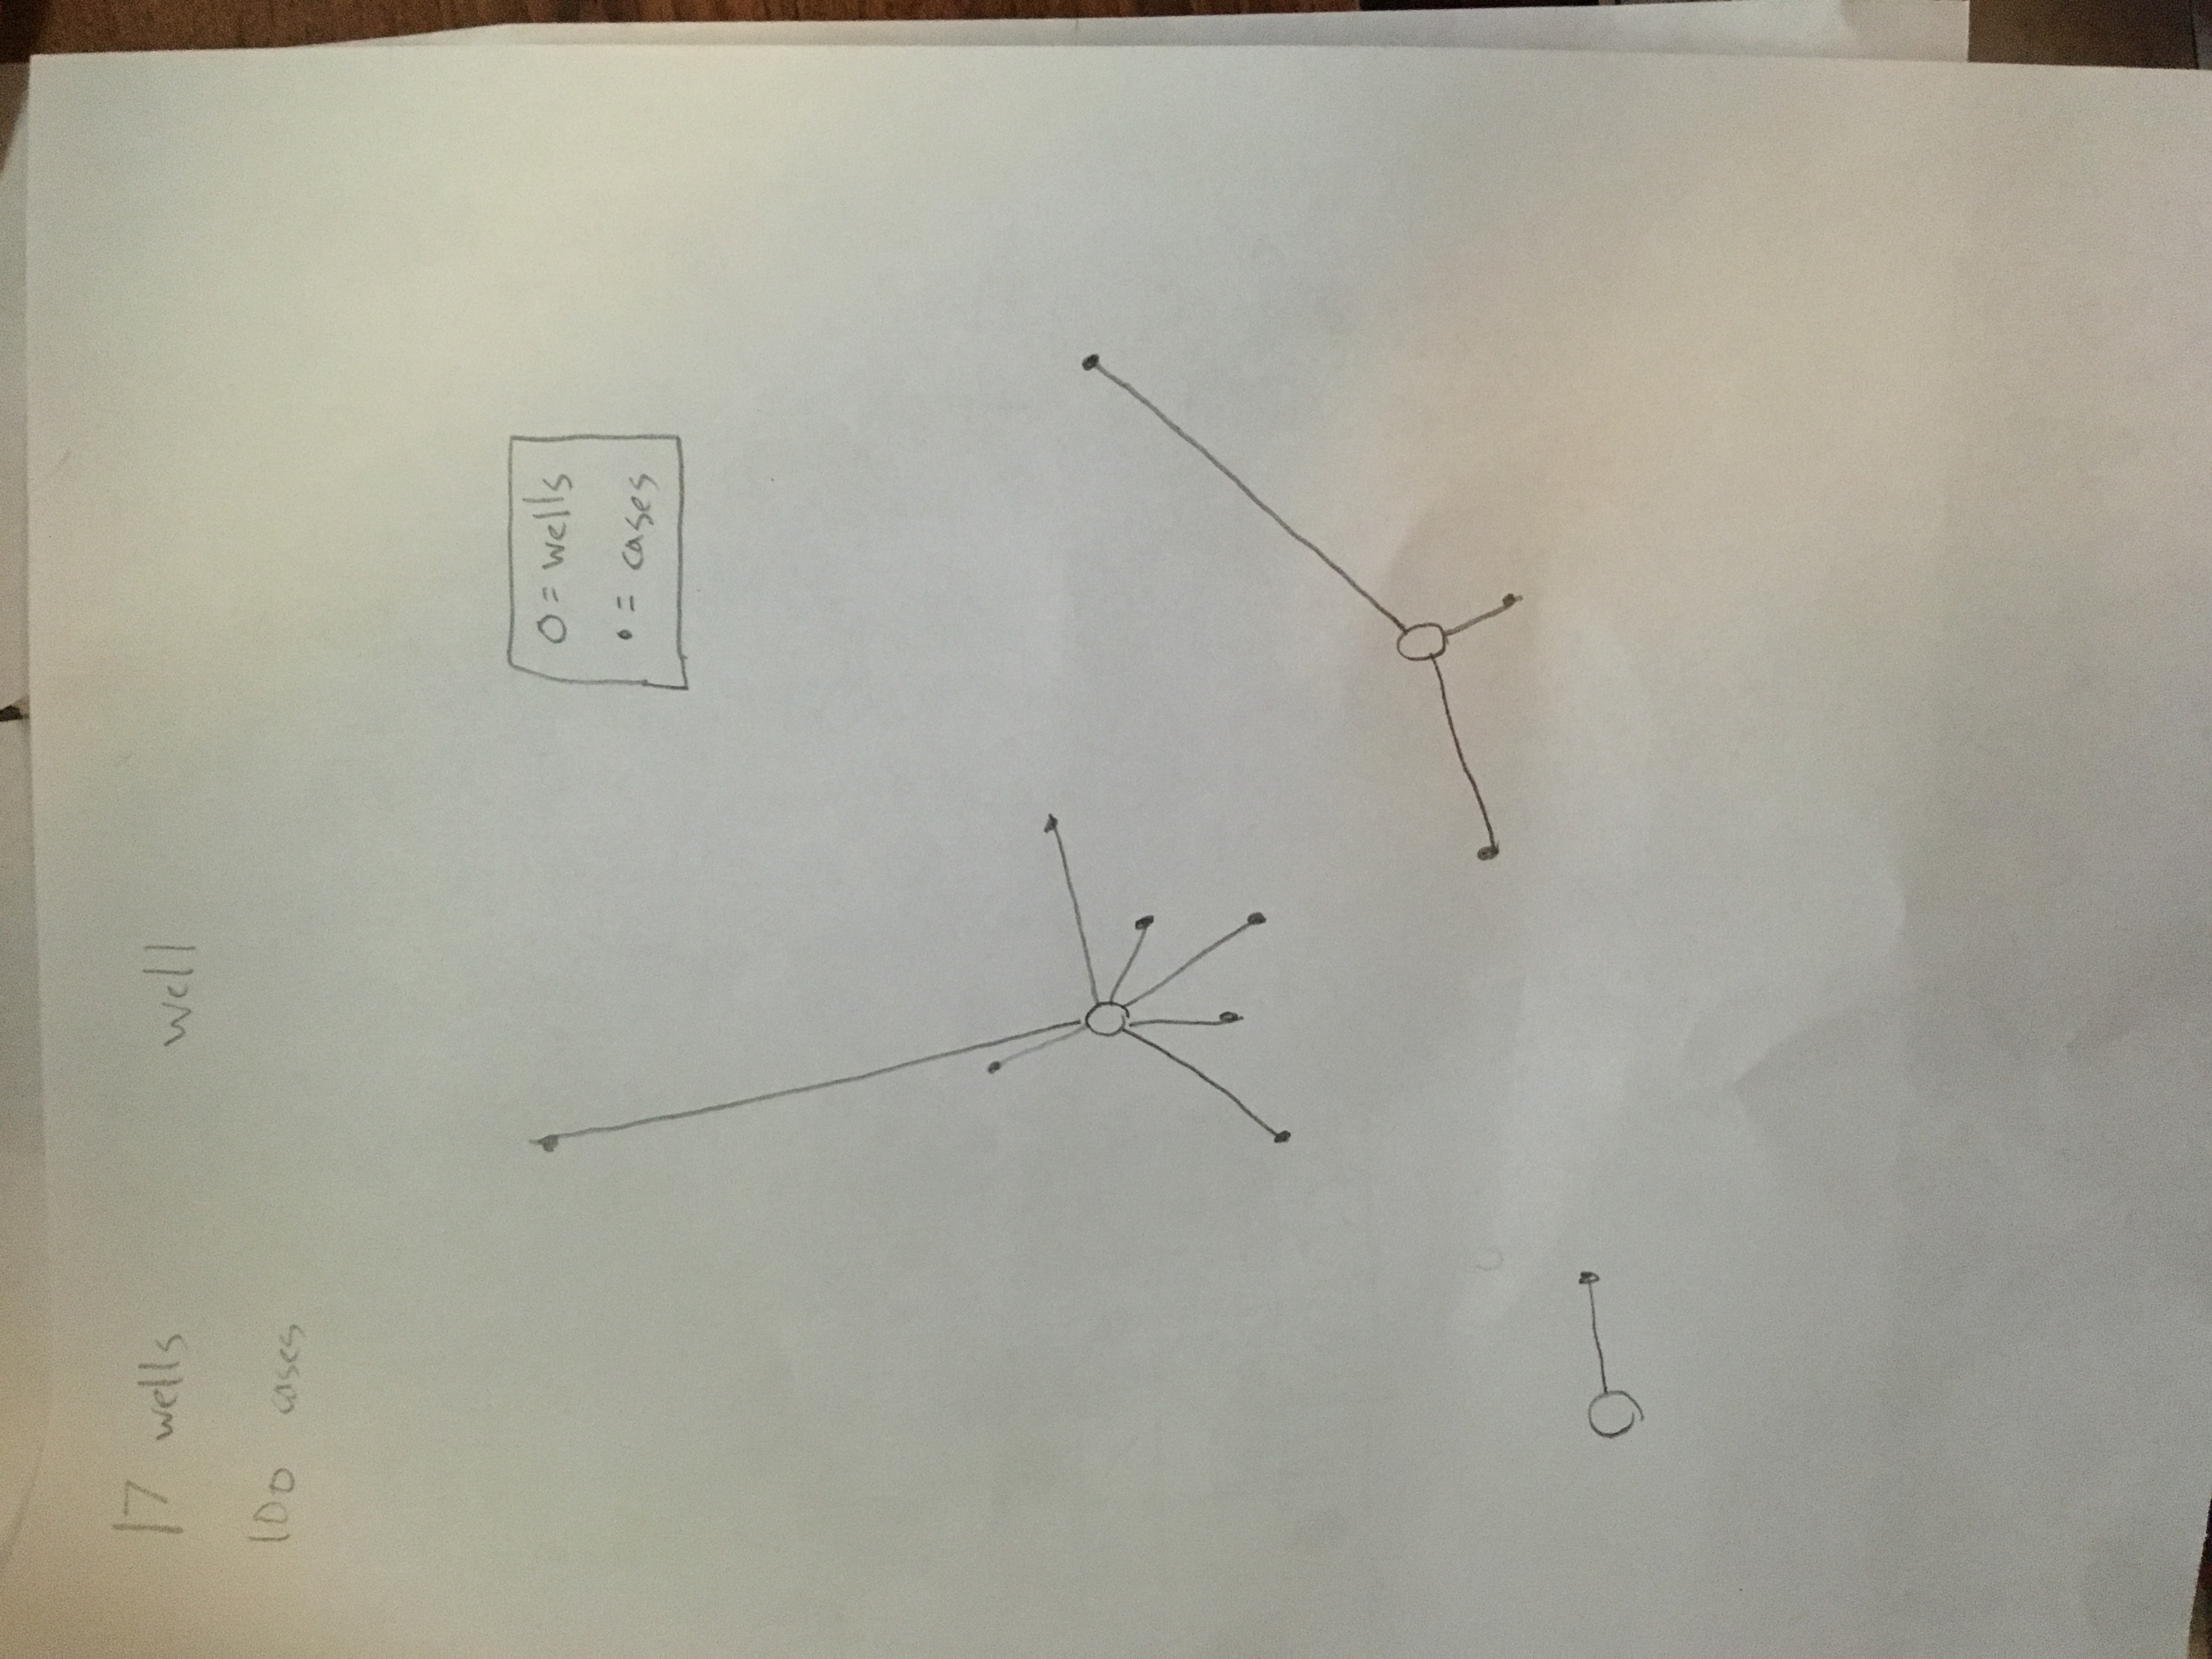 17 wells
well
100 cases
O = wells
• = cases